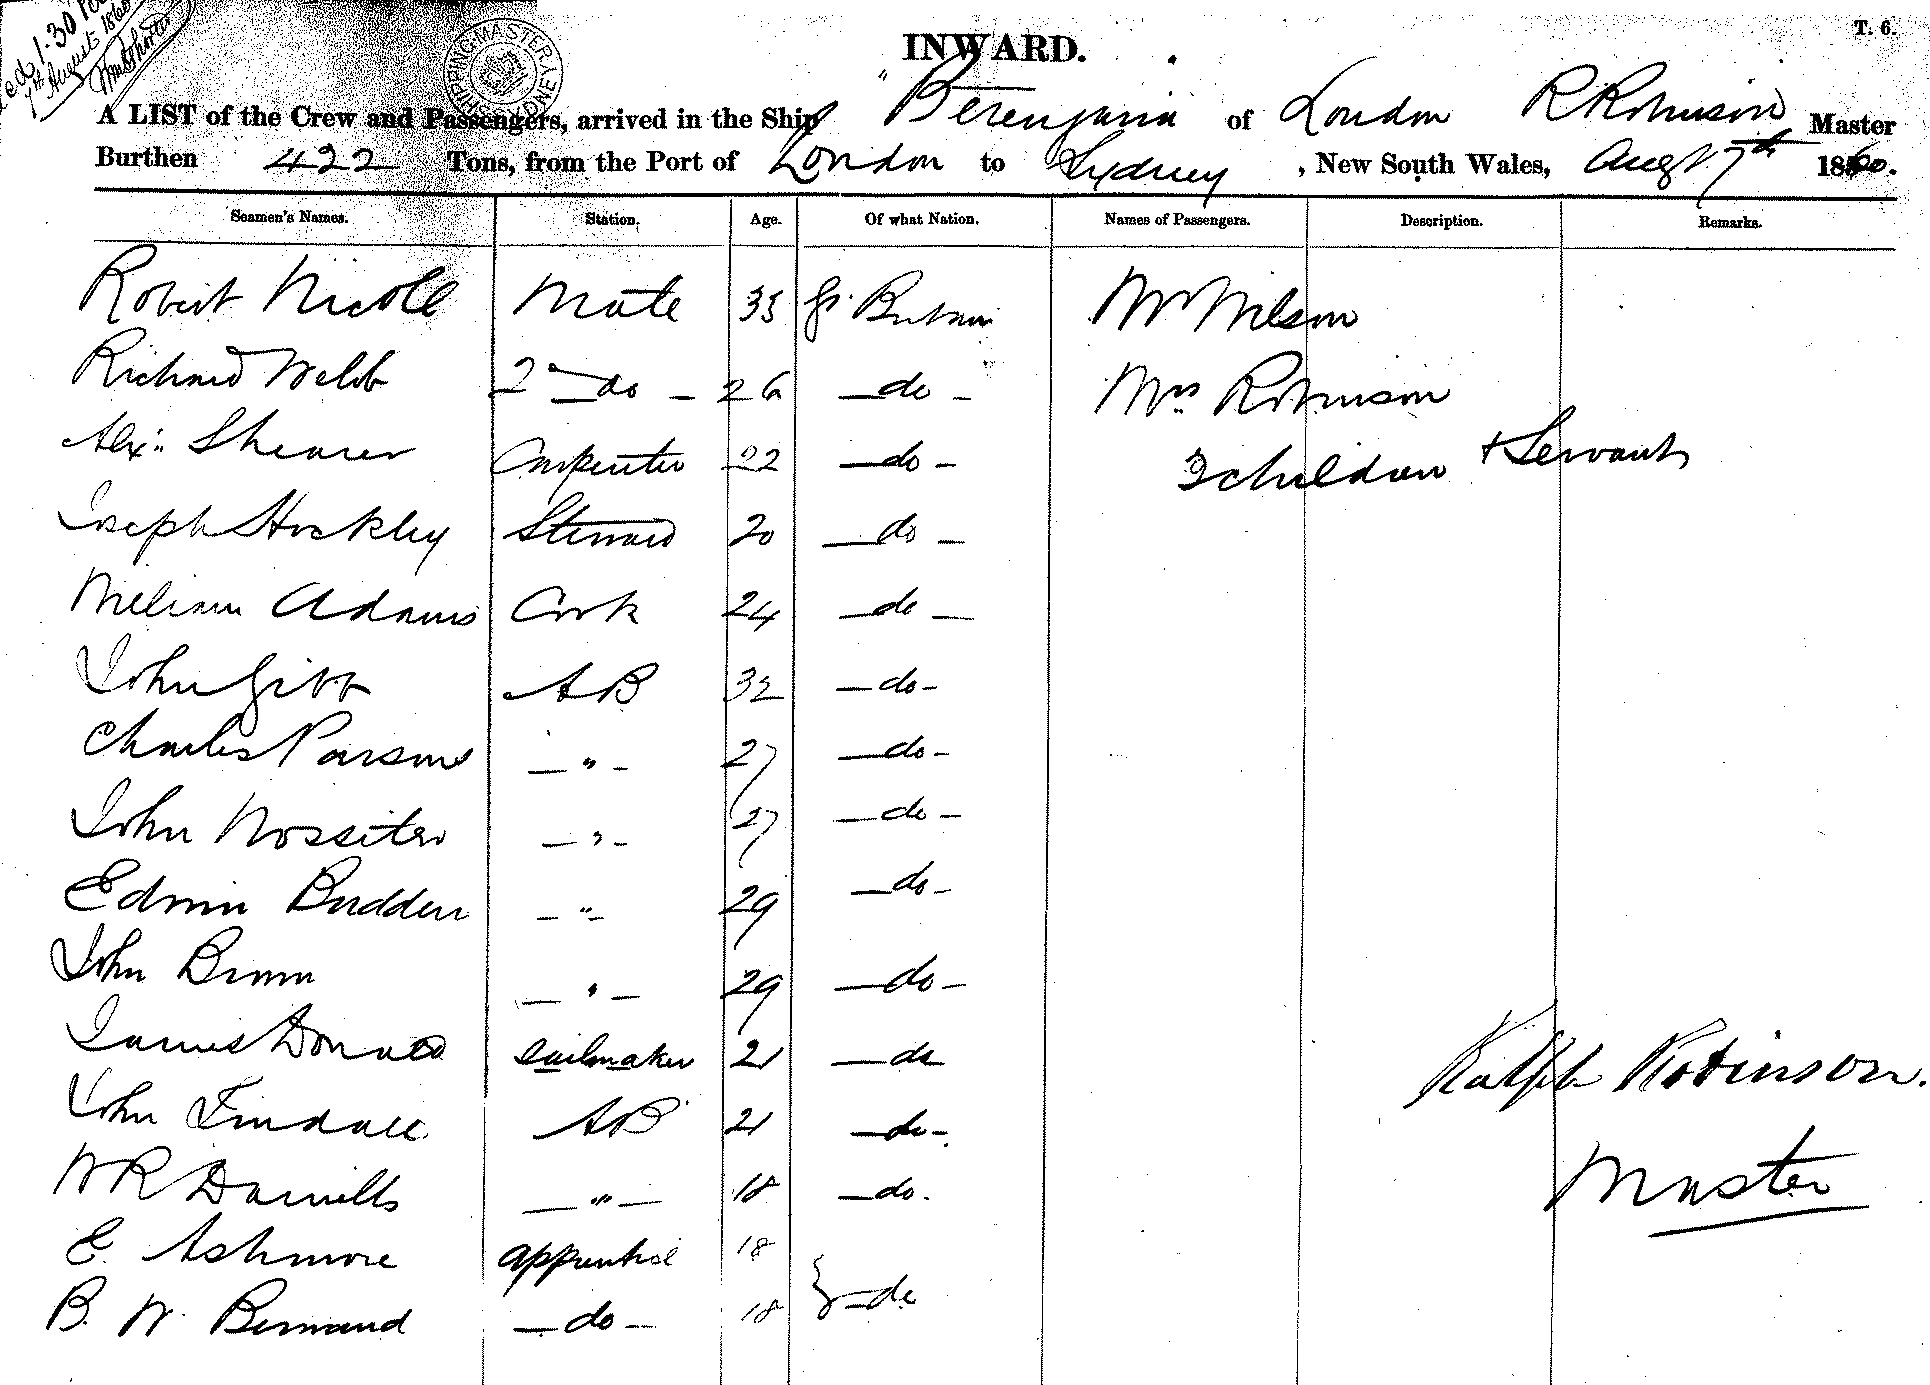 1.30
7th August 1860
SHIPPING MASTER SYDNEY
T. 6.
INWARD.
A LIST of the Crew and Passengers, arrived in the Ship "Berengaria of London R Robinson Master
Burthen 422 Tons, from the Port of London to Sydney, New South Wales, Augt 7th 1860.
Seamen's Names. Station. Age. Of what Nation. Names of Passengers. Description. Remarks.
Robert Nicoll Mate 35 Gt. Britain Mr Wilson
Richard Webb 2nd do - 26 - do - Mrs Robinson
Alexr. Shearer Carpenter 22 - do - 3 children + Servant
Joseph Hockley Steward 20 - do -
William Adams Cook 24 - do -
John Gibb AB 32 - do -
Charles Parsons - " - 27 - do -
John Nossiter - " - 27 - do -
Edwin Budden - " - 29 - do -
John Brown - " - 29 - do -
James Donald Sailmaker 21 - do
John Tindall AB 21 - do -
W R Daniells - " - 18 - do.
E. Ashmore apprentice 18
B. W. Bernand - do - 18 } - do
Ralph Robinson.
Master